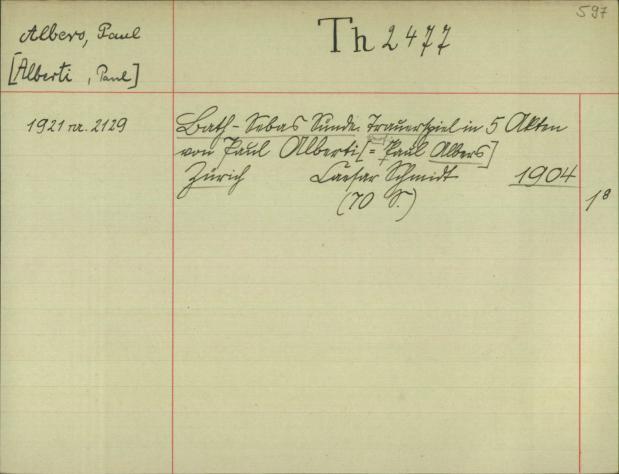 597
Albers, Paul
[Alberti, Paul]
Th 2477
1921 nr. 2129
Bath-Sebas Sünde. Trauerspiel in 5 Akten
von Paul Alberti [= Paul Albers]
Zürich Caesar Schmidt 1904
(70 S.)
1⁸